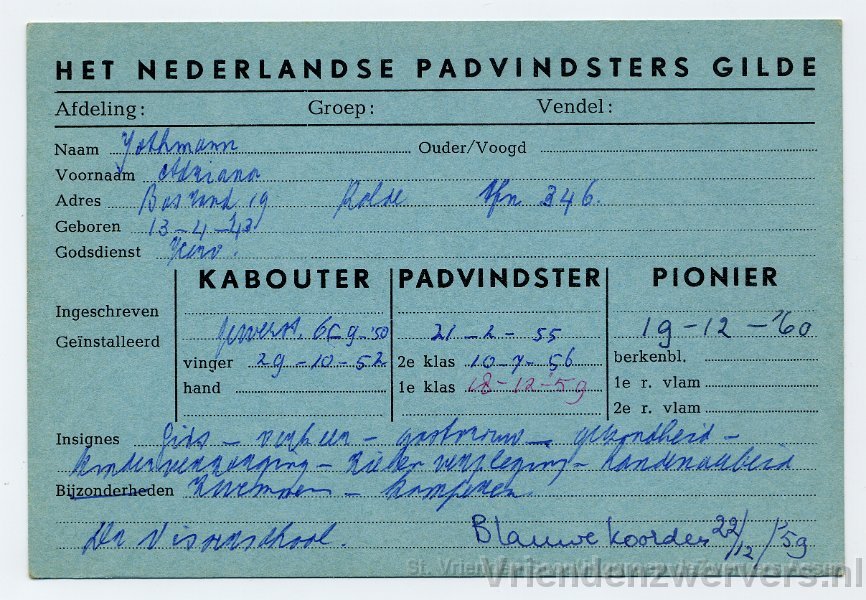 HET NEDERLANDSE PADVINDSTERS GILDE
Afdeling: Groep: Vendel:
Naam Jothmann Ouder/Voogd
Voornaam Adriana
Adres Bosrand 19 Rolde tfn 346.
Geboren 13-4-43
Godsdienst Herv.
KABOUTER PADVINDSTER PIONIER
Ingeschreven
Geïnstalleerd 9-'50 21-2-55 19-12-'60
vinger 29-10-52 2e klas 10-7-56 berkenbl.
hand 1e klas 18-12-'59 1e r. vlam
2e r. vlam
Insignes Gids - gastvrouw - gezondheid -
kinderverzorging - zieken verpleging - handenarbeid
Bijzonderheden Zwemmen - kamperen.
Blauwe koorden 22/12/'59
St. Vrienden
Vriendenzwervers.nl